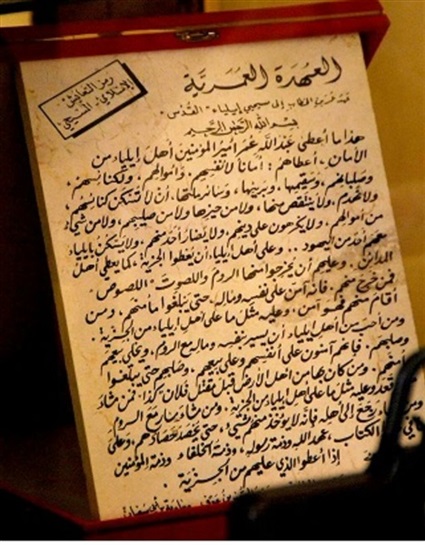 العهدة العمرية
رمز التعايش
الإسلامي المسيحي
عمر بن الخطاب إلى مسيحيي إيلياء "القدس"
بسم الله الرحمن الرحيم
هذا ما أعطى عبد الله عمر أمير المؤمنين أهل إيلياء من
الأمان. أعطاهم: أماناً لأنفسهم، وأموالهم، ولكنائسهم،
وصلبانهم، وسقيمها، وبريئها، وسائر ملتها، أن لا تسكن كنائسهم،
ولا تهدم، ولا ينتقص منها، ولا من حيزها ولا من صليبهم، ولا من شيء
من أموالهم. ولا يكرهون على دينهم، ولا يضار أحد منهم. ولا يسكن بإيلياء
معهم أحد من اليهود.. وعلى أهل إيلياء أن يعطوا الجزية، كما يعطي أهل
المدائن. وعليهم أن يخرجوا منها الروم واللصوت - اللصوص
فمن خرج منهم. فإنه آمن على نفسه وماله، حتى يبلغوا مأمنهم، ومن
أقام منهم فهو آمن. وعليه مثل ما على أهل إيلياء من الجزية.
ومن أحب من أهل إيلياء أن يسير بنفسه وماله مع الروم، وعلى بيعهم
وصلبهم. فإنهم آمنون على أنفسهم وعلى بيعهم، وصلبهم حتى يبلغوا
مأمنهم. ومن كان بها من أهل الأرض قبل مقتل فلان كذا: فمن شاء
قعد وعليه مثل ما على أهل إيلياء من الجزية. ومن شاء سار مع الروم
ومن رجع إلى أهله فإنه لا يؤخذ منهم شيء، حتى يحصد حصادهم، وعلى
الكتاب، عهد الله وذمة رسوله، وذمة الخلفاء وذمة المؤمنين
إذا أعطوا الذي عليهم من الجزية.